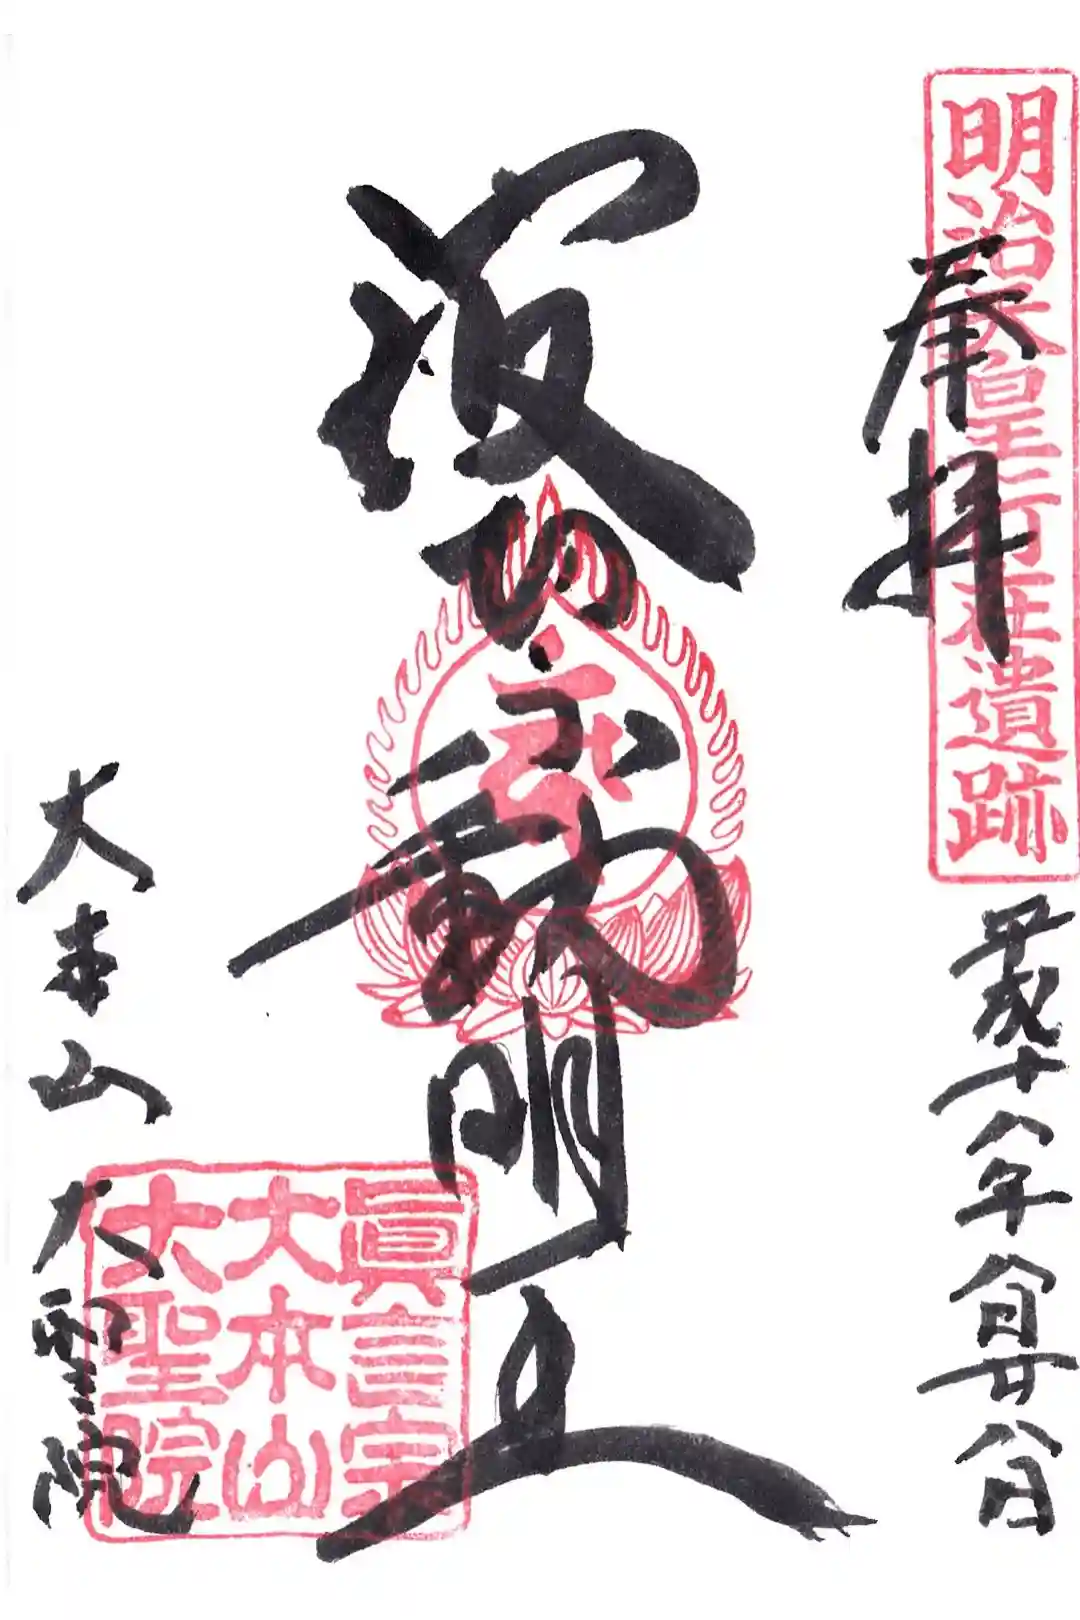 明治天皇行在遺跡
奉拝
平成十八年八月廿八日
波切不動明王
眞言宗
大本山
大聖院
大本山 大聖院